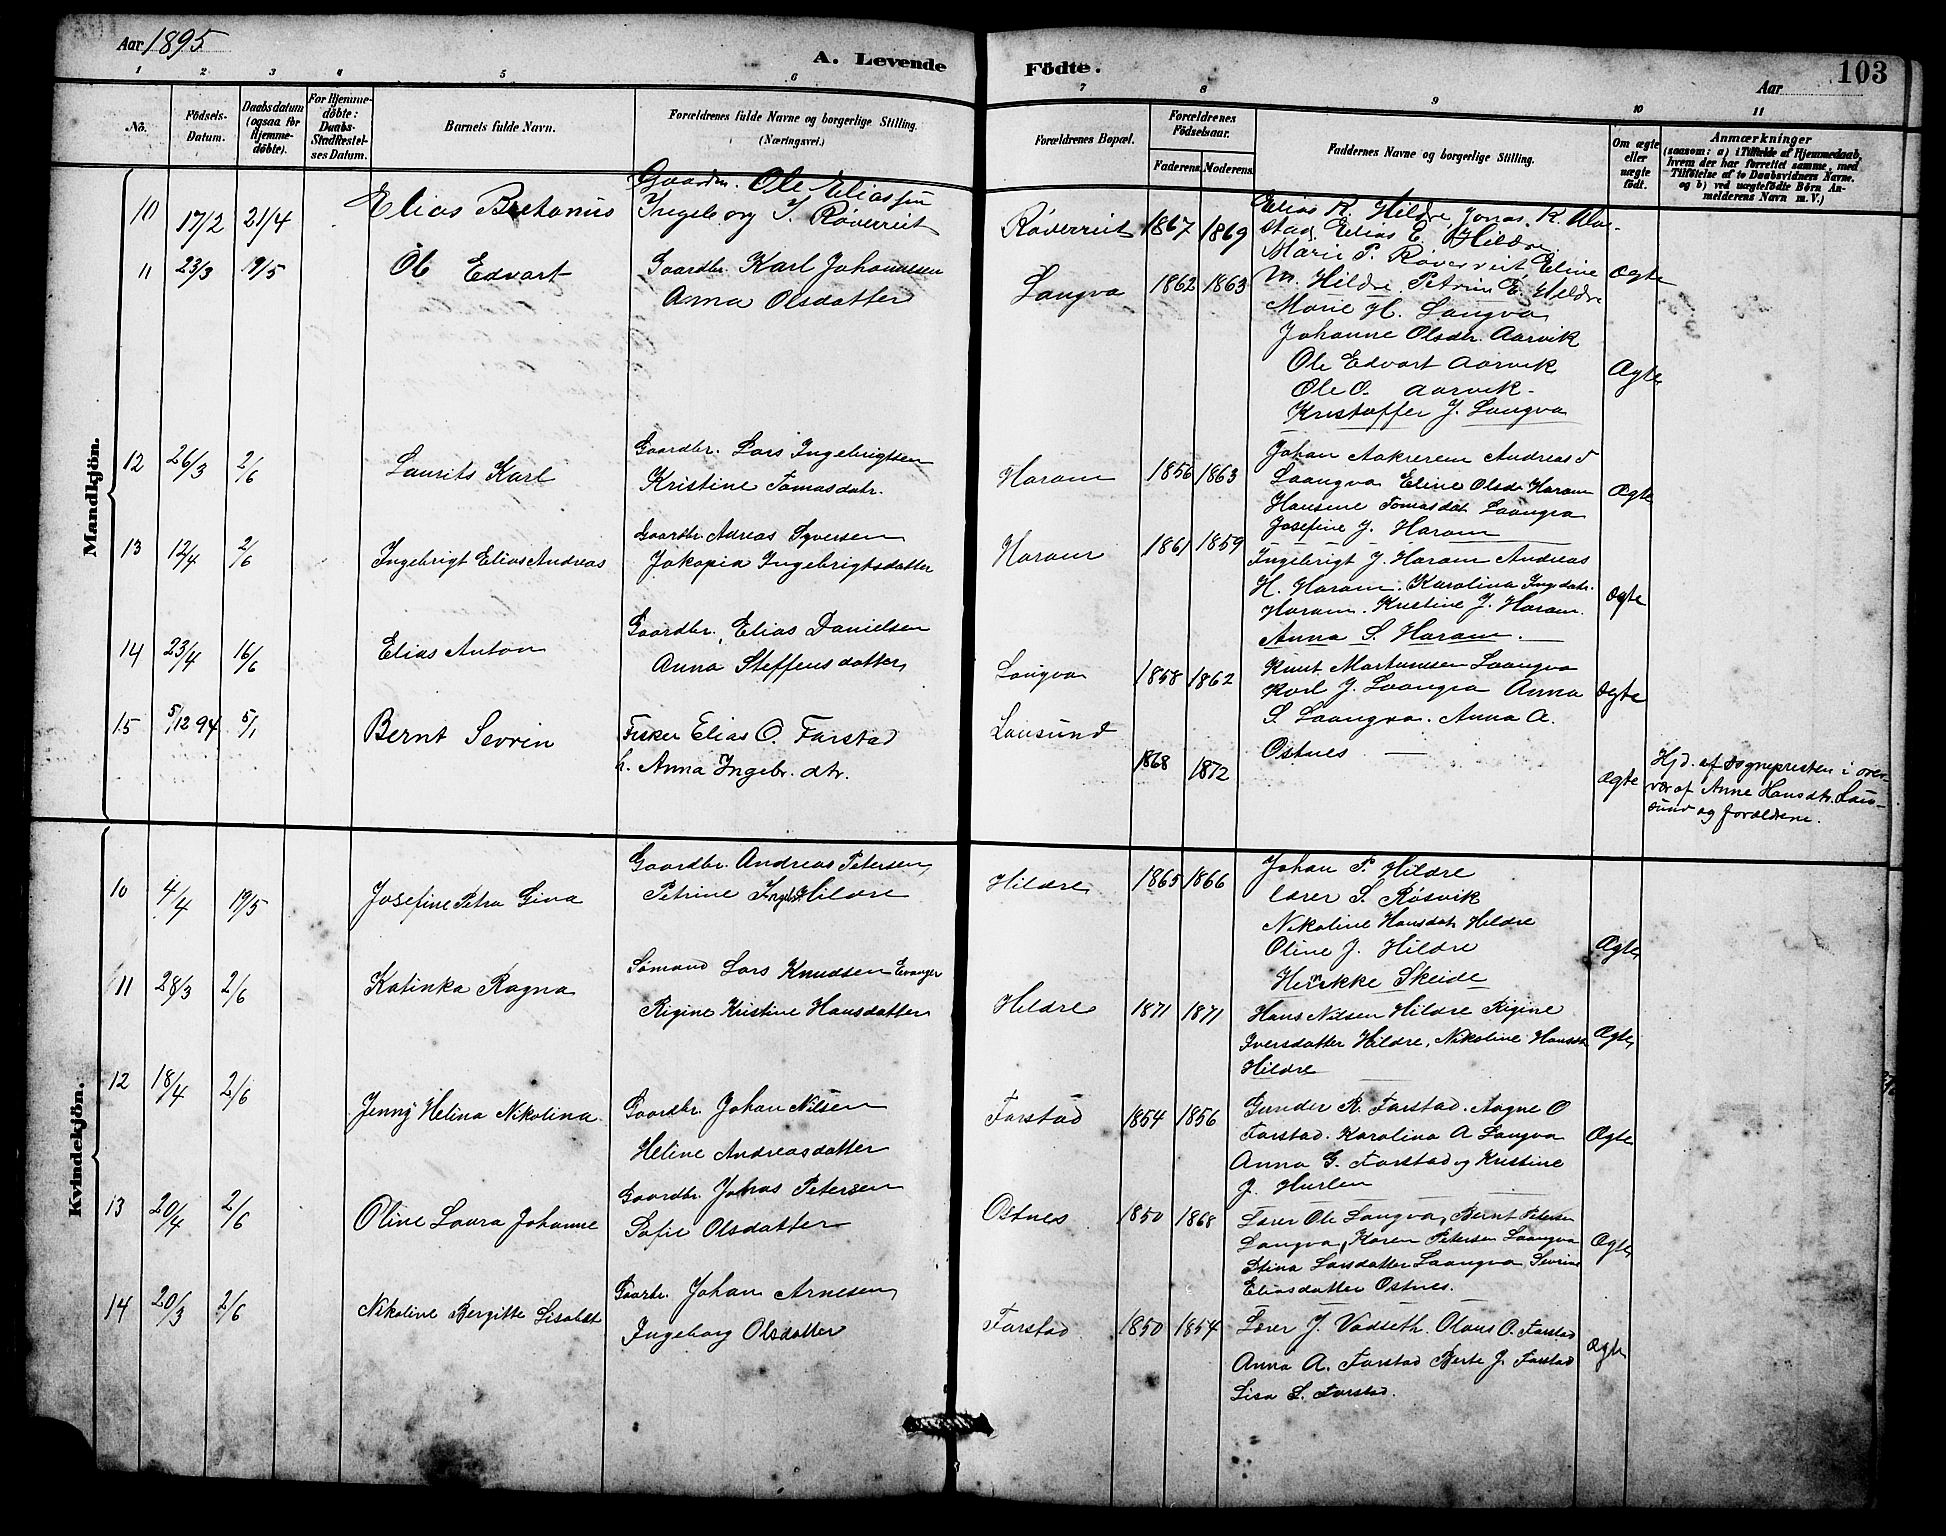 Aar 1895
A. Levende Födte.
Aar
103
1 2 3 4 5 6 7 8 9 10 11
No.
Födsels-
Datum.
Daabsdatum
(ogsaa for
Hjemme-
döbte).
For Hjemme-
döbte:
Daabs-
Stadfæstel-
ses Datum.
Barnets fulde Navn.
Forældrenes fulde Navne og borgerlige Stilling.
(Næringsvei.)
Forældrenes Bopæl.
Forældrenes
Födselsaar.
Faderens. Moderens.
Faddernes Navne og borgerlige Stilling.
Om ægte
eller
uægte
födt.
Anmærkninger
(saasom: a) i Tilfælde af Hjemmedaab,
hvem der har forrettet samme, med
Tilföielse af to Daabsvidners Navne.
og b) ved uægtefödte Börn An-
melderens Navn m. V.)
Mandkjön.
10 17/2 21/4
Elias
Ole Eliassen
Ingeborg J. Røverreit
Røverreit 1867 1869
Elias K. Hildre, Jonas K.
stad, Elias E. Hildre
Marie P. Røverreit, Eline
M. Hildre, Petrine E. Hildre
Ægte
11 23/3 19/5
Ole Edvart
Gaardbr. Karl Johannesen
Anna Olsdatter
Langva 1862 1863
Marie H. Langva
Johanne Olsdtr. Aarvik
Ole Edvart Aarvik
Ole O. Aarvik
Kristoffer J. Langva
Ægte
12 26/3 2/6
Laurits Karl
Gaardbr. Lars Ingebrigtsen
Kristine Tomasdatr.
Haram 1856 1863
Johan Aakrerem Andreas
Laangva Eline Olsdr Haram
Hansine Tomasdat Laangva
Josefine J. Haram
Ægte
13 12/4 2/6
Ingebrigt Elias Andreas
Gaardbr Adreas Syversen
Jakopia Ingebrigtsdatter
Haram 1861 1859
Ingebrigt J. Haram Andreas
H. Haram. Karolina Ingdatr.
Haram. Kristine J. Haram.
Anna S. Haram.
Ægte
14 23/4 16/6
Elias Anton
Gaardbr. Elias Danielsen
Anna Steffensdatter
Langva 1858 1862
Knut Martinusen Laangva
Karl J. Laangva Anna
S. Laangva. Anna A.
Ostnes
Ægte
15 5/12 94 5/1
Bernt Sevrin
Fisker Elias O. Farstad
h. Anna Ingebr. dtr.
Lausund
1868 1872
Ægte
Hjd. af sognepresten i over-
vær af Anne Hansdtr. Lau-
sund og forældrene.
Kvindekjön.
10 4/4 19/5
Josefine Petra Gina
Gaardbr. Andreas Petersen
Petrine Hildre
Hildre 1865 1866
Johan P. Hildre
Lærer S. Røsvik
Nikoline Hansdatr Hildre
Oline J. Hildre
Skeide
Ægte
11 28/3 2/6
Katinka Ragna
Sømand Lars Knudsen Evanger
Rigine Kristine Hansdatter
Hildre 1871 1871
Hans Nilsen Hildre Rigine
Iversdatter Hildre, Nikoline Hansdt
Hildre
Ægte
12 18/4 2/6
Jenny Helina Nikolina
Gaardbr. Johan Nilsen
Heline Andreasdatter
Farstad 1854 1856
Gunder R. Farstad. Aagne O
Farstad. Karolina A Langva
Anna G. Farstad og Kristine
J. Hurlen
Ægte
13 20/4 2/6
Oline Laura Johanne
Gaardbr. Johas Petersen
Sofie Olsdatter
Ostnes 1850 1868
Lærer Ole Langva, Bernt Petersen
Langva, Karen Petersen Laangva
Stina Larsdatter Laangva Sevrine
Eliasdatter Ostnes.
Ægte
14 20/3 2/6
Nikoline Bergitte Lisabet
Gaarbr. Johan Arnesen
Ingeborg Olsdatter
Farstad 1850 1854
Lærer J. Vadseth. Olaus O. Farstad
Anna A. Farstad Berte J. Farstad
Lisa L. Farstad.
Ægte